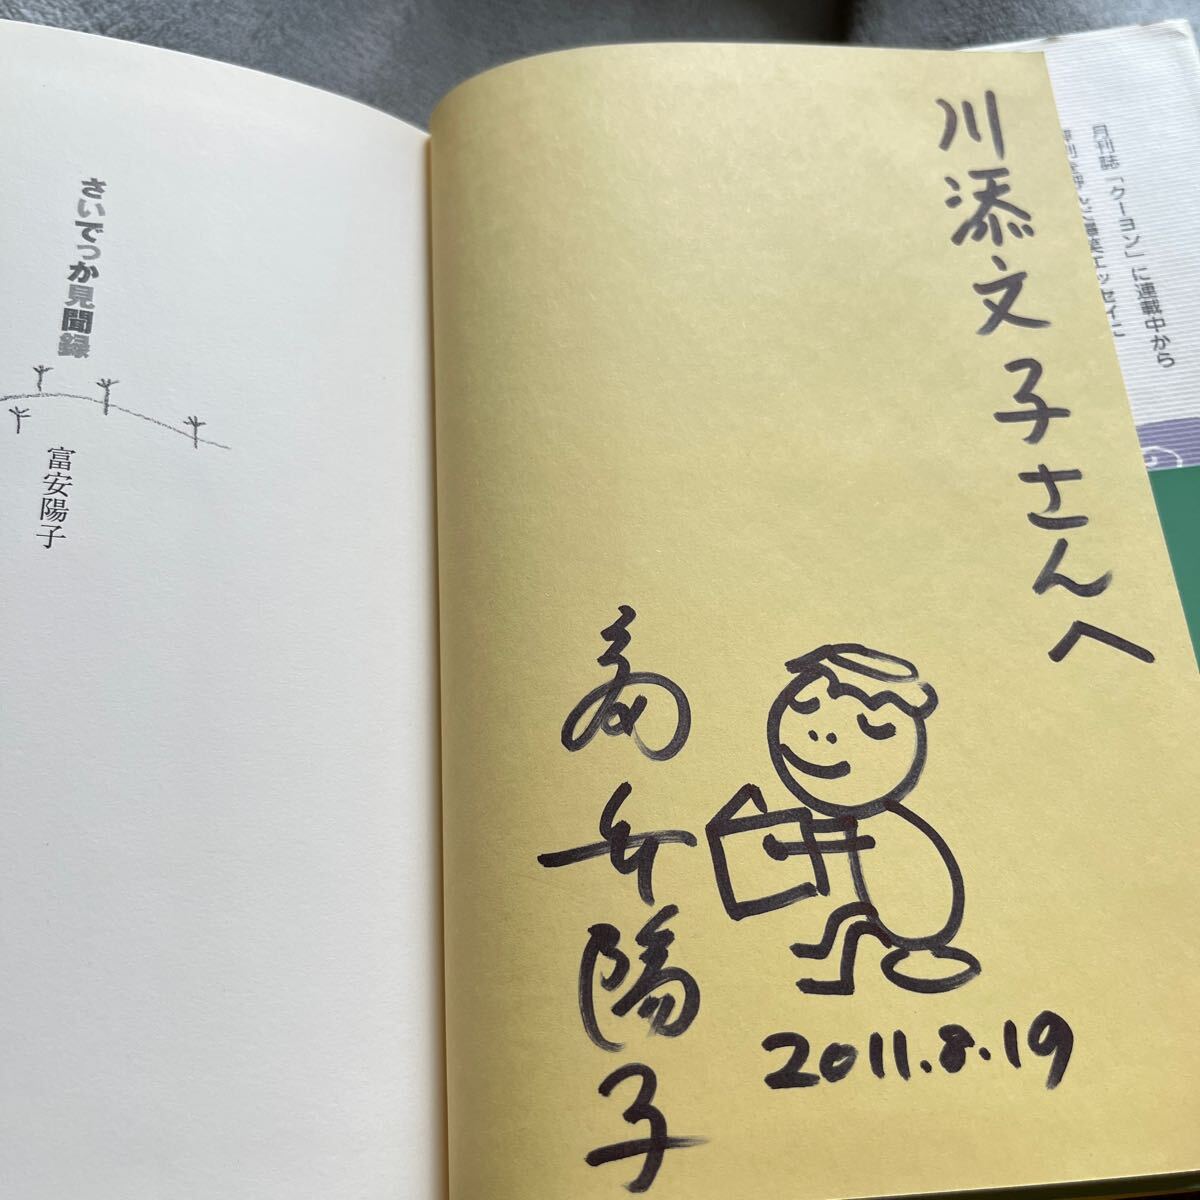 さいでっか見聞録
富安陽子
川添文子さんへ
富安陽子
2011.8.19
月刊誌「クーヨン」に連載中から